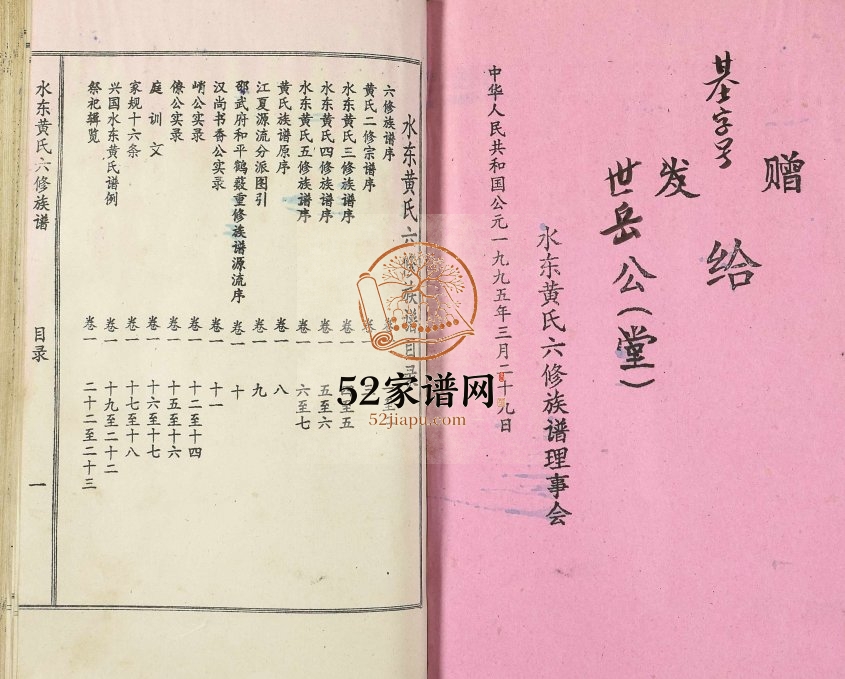 赠
发给
基字号
世岳公(堂)
水东黄氏六修族谱理事会
中华人民共和国公元一九九五年三月二十九日
水东黄氏六修族谱目录
六修族谱序 卷一
黄氏二修宗谱序 卷一
水东黄氏三修族谱序 卷一 至五
水东黄氏四修族谱序 卷一 五至六
水东黄氏五修族谱序 卷一 六至七
黄氏族谱原序 卷一 八
江夏源流分派图引 卷一 九
邵武府和平鹤薮重修族谱源流序 卷一 十
汉尚书香公实录 卷一 十一
峭公实录 卷一 十二至十四
僚公实录 卷一 十五至十六
庭训文 卷一 十六至十七
家规十六条 卷一 十七至十八
兴国水东黄氏谱例 卷一 十九至二十二
祭祀辑览 卷一 二十二至二十三
水东黄氏六修族谱 目录 一
52家谱网
52jiapu.com